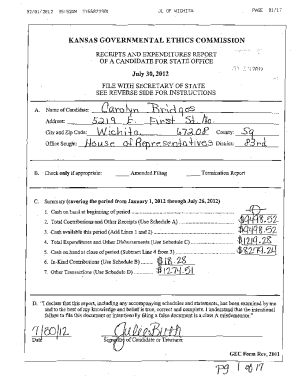 07/31/2012
JL OF WICHITA
PAGE 01/17
KANSAS GOVERNMENTAL ETHICS COMMISSION
RECEIPTS AND EXPENDITURES REPORT
OF A CANDIDATE FOR STATE OFFICE
July 30, 2012
FILE WITH SECRETARY OF STATE
SEE REVERSE SIDE FOR INSTRUCTIONS
A. Name of Candidate: Carolyn Bridges
Address: 5219 E. First St. No.
City and Zip Code: Wichita 67208 County: Sg
Office Sought: House of Representatives District: 83rd
B. Check only if appropriate: Amended Filing Termination Report
C. Summary (covering the period from January 1, 2012 through July 26, 2012)
1. Cash on hand at beginning of period
2. Total Contributions and Other Receipts (Use Schedule A) $9498.52
3. Cash available this period (Add Lines 1 and 2) $9498.52
4. Total Expenditures and Other Disbursements (Use Schedule C) $1219.28
5. Cash on hand at close of period (Subtract Line 4 from 3) $8279.24
6. In-Kind Contributions (Use Schedule B) $18.28
7. Other Transactions (Use Schedule D) $1274.51
D. "I declare that this report, including any accompanying schedules and statements, has been examined by me
and to the best of my knowledge and belief is true, correct and complete. I understand that the intentional
failure to file this document or intentionally filing a false document is a class A misdemeanor."
7/30/12
Date Signature of Candidate or Treasurer
GEC Form Rev, 2011
pg 1 of 17